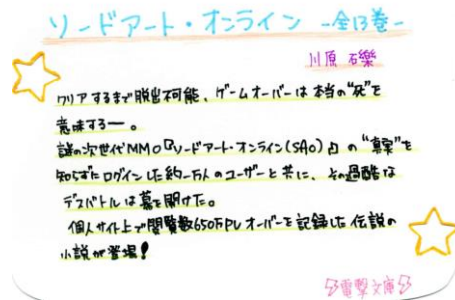 ソードアート・オンライン -全13巻-
川原 礫
クリアするまで脱出不可能、ゲームオーバーは本当の"死"を
意味するー。
謎の次世代MMO『ソードアート・オンライン(SAO)』の"真実"を
知らずにログインした約一万人のユーザーと共に、その過酷な
デスバトルは幕を開けた。
個人サイト上で閲覧数650万PVオーバーを記録した伝説の
小説が登場!
電撃文庫